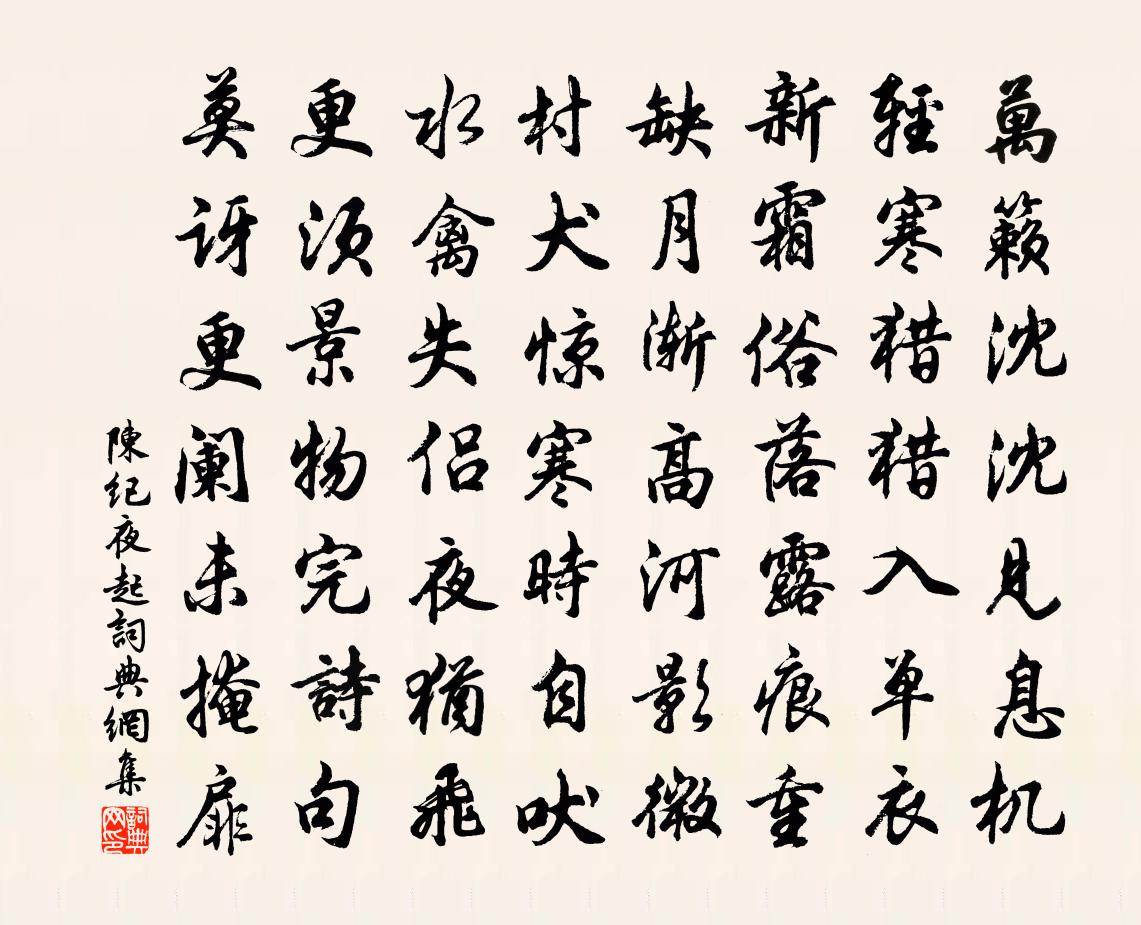 萬籟沈沈見息机
輕寒猎猎入单衣
新霜俗落露痕重
缺月渐高河影微
村犬惊寒時自吠
水禽失侣夜猶飛
更须景物完詩句
莫讶更阑未掩扉
陳紀夜起詞典網集
詞典网印